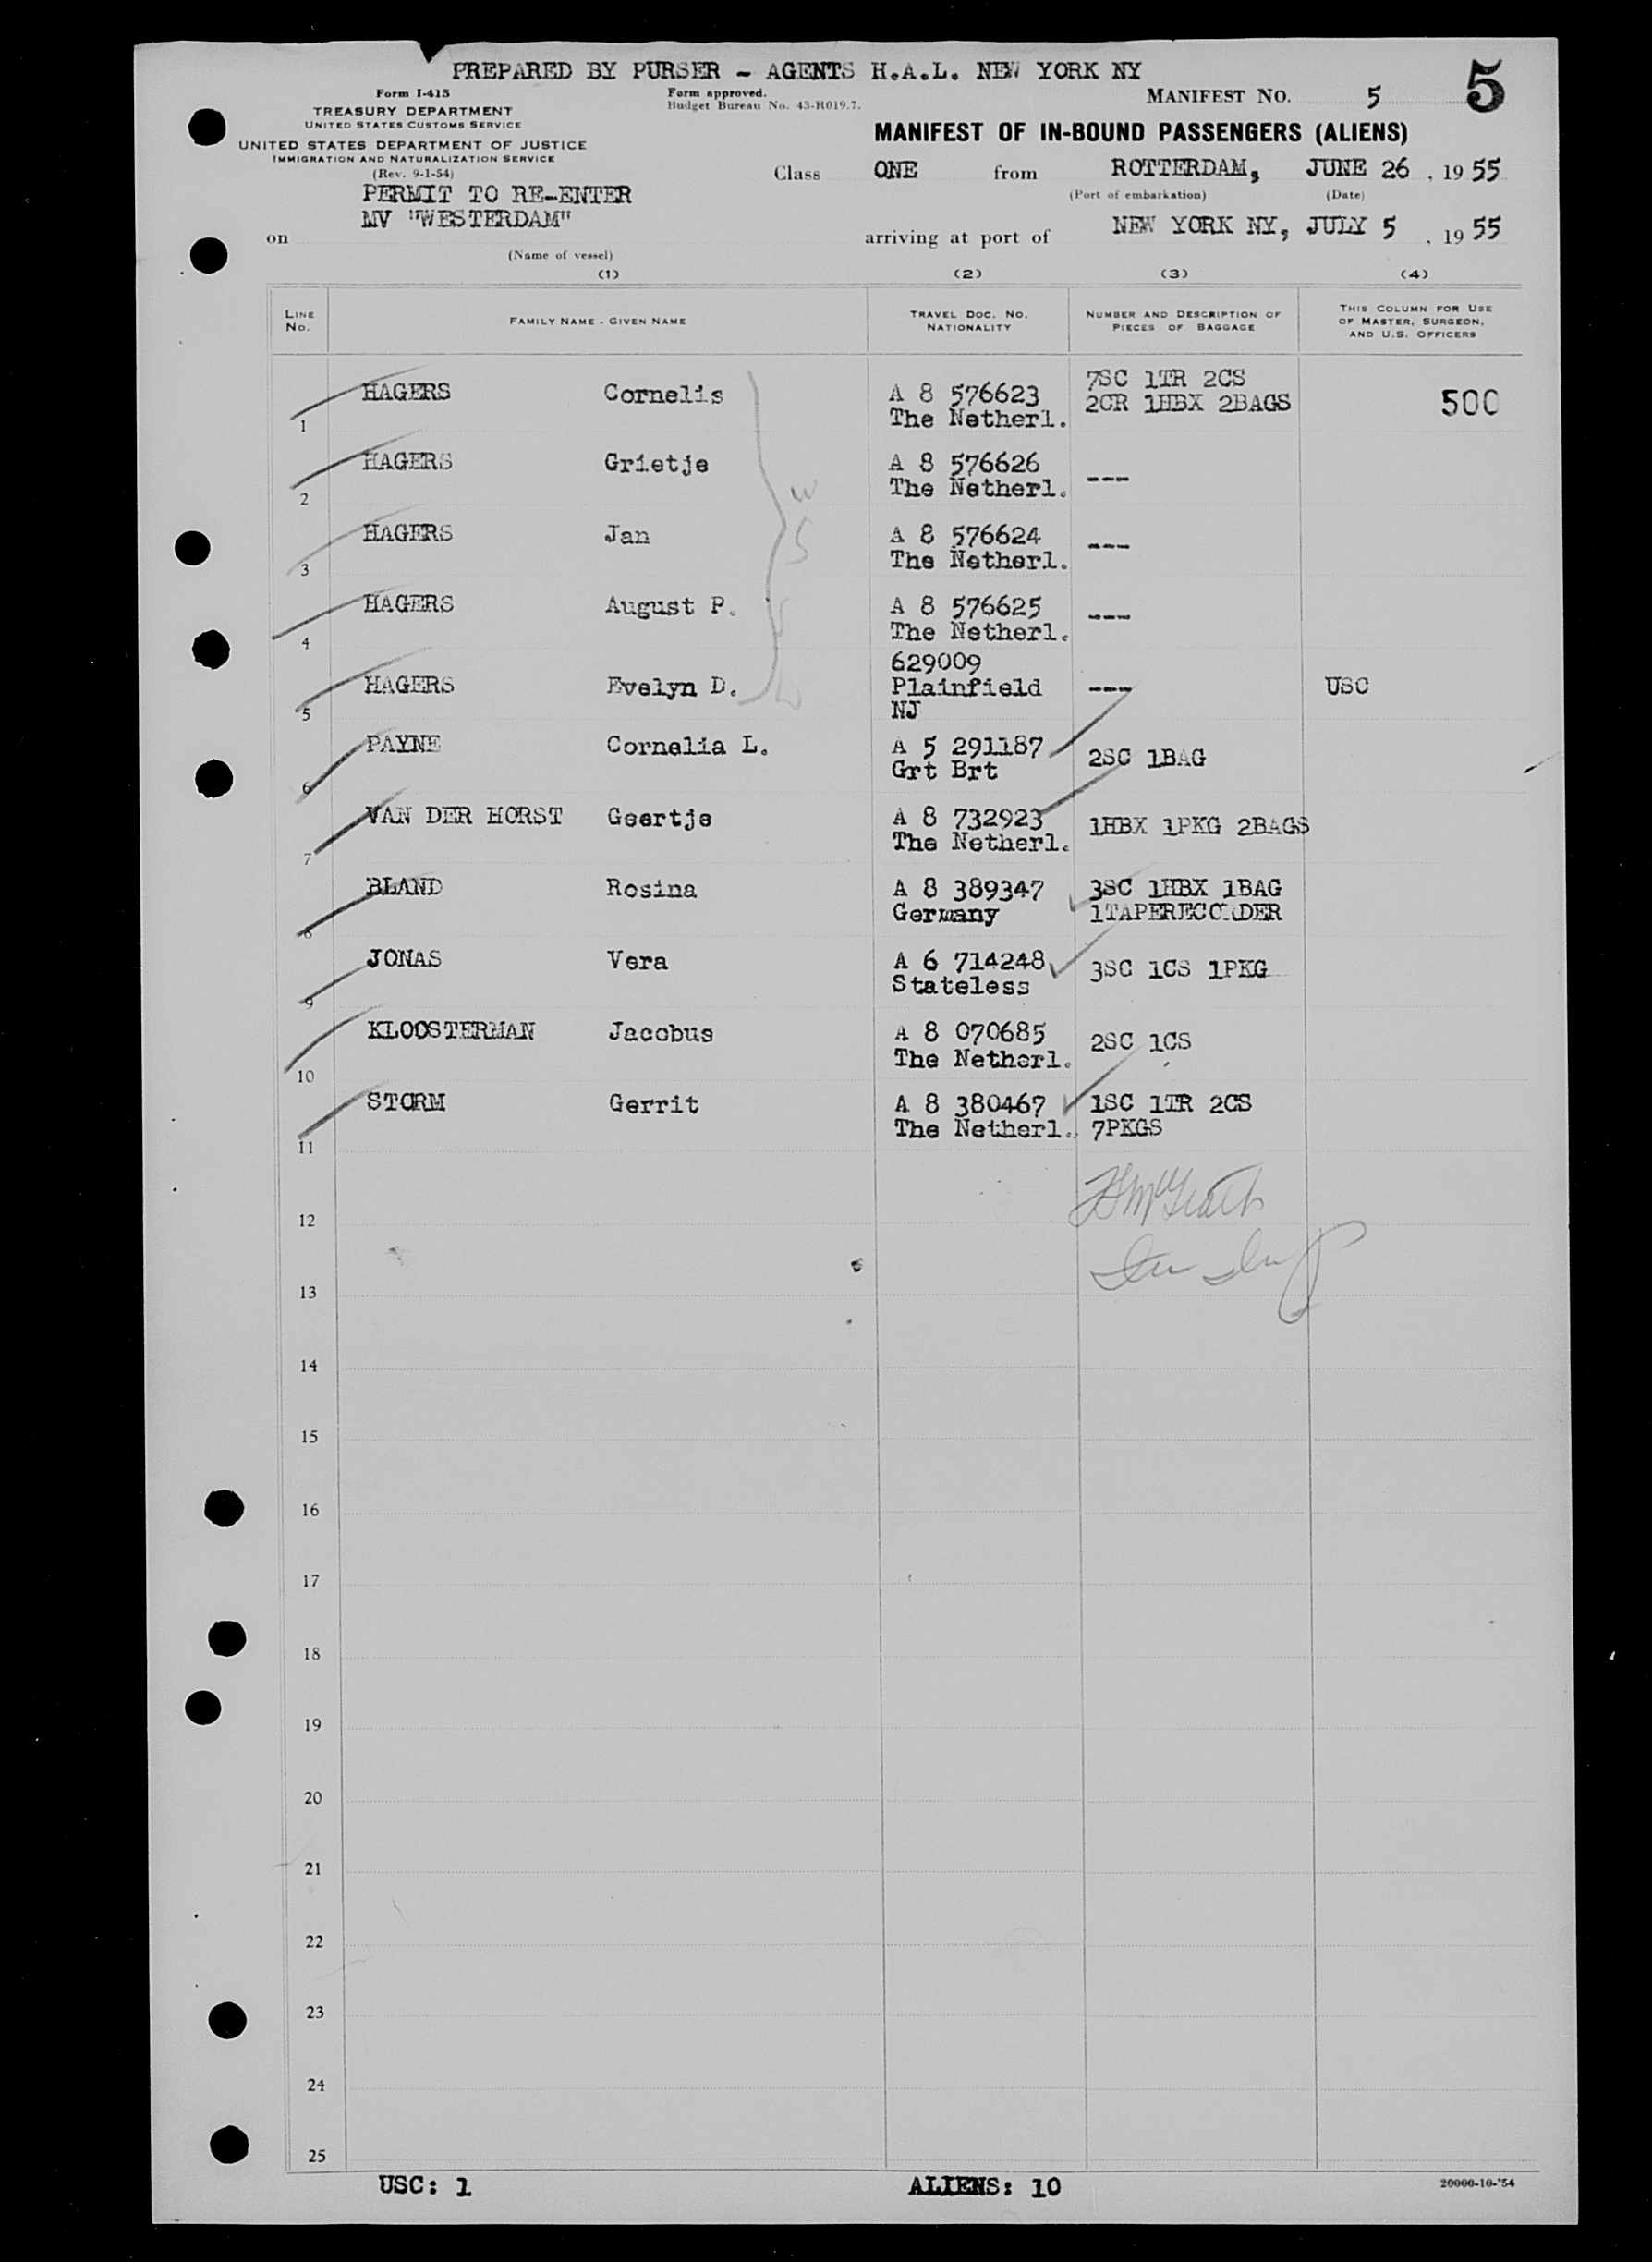 PREPARED BY PURSER - AGENTS H.A.L. NEW YORK NY
5
Form I-415
Form approved.
Budget Bureau No. 43-R019.7.
MANIFEST NO. 5
TREASURY DEPARTMENT
UNITED STATES CUSTOMS SERVICE
UNITED STATES DEPARTMENT OF JUSTICE
IMMIGRATION AND NATURALIZATION SERVICE
(Rev. 9-1-54)
MANIFEST OF IN-BOUND PASSENGERS (ALIENS)
Class ONE from ROTTERDAM, JUNE 26 , 19 55
(Port of embarkation) (Date)
PERMIT TO RE-ENTER
on MV "WESTERDAM" arriving at port of NEW YORK NY, JULY 5 , 19 55
(Name of vessel)
(1) (2) (3) (4)
LINE NO. FAMILY NAME - GIVEN NAME TRAVEL DOC. NO. NATIONALITY NUMBER AND DESCRIPTION OF PIECES OF BAGGAGE THIS COLUMN FOR USE OF MASTER, SURGEON, AND U.S. OFFICERS
1 HAGERS Cornelis A 8 576623 7SC 1TR 2CS 500
The Netherl. 2CR 1HBX 2BAGS
2 HAGERS Grietje A 8 576626 ---
The Netherl.
3 HAGERS Jan A 8 576624 ---
The Netherl.
4 HAGERS August P. A 8 576625 ---
The Netherl.
5 HAGERS Evelyn D. 629009 --- USC
Plainfield
NJ
6 PAYNE Cornelia L. A 5 291187 2SC 1BAG
Grt Brt
7 VAN DER HORST Geertje A 8 732923 1HBX 1PKG 2BAGS
The Netherl.
8 BLAND Rosina A 8 389347 3SC 1HBX 1BAG
Germany 1TAPERECORDER
9 JONAS Vera A 6 714248 3SC 1CS 1PKG
Stateless
10 KLOOSTERMAN Jacobus A 8 070685 2SC 1CS
The Netherl.
11 STORM Gerrit A 8 380467 1SC 1TR 2CS
The Netherl. 7PKGS
12
13
14
15
16
17
18
19
20
21
22
23
24
25
USC: 1 ALIENS: 10
20000-10-'54